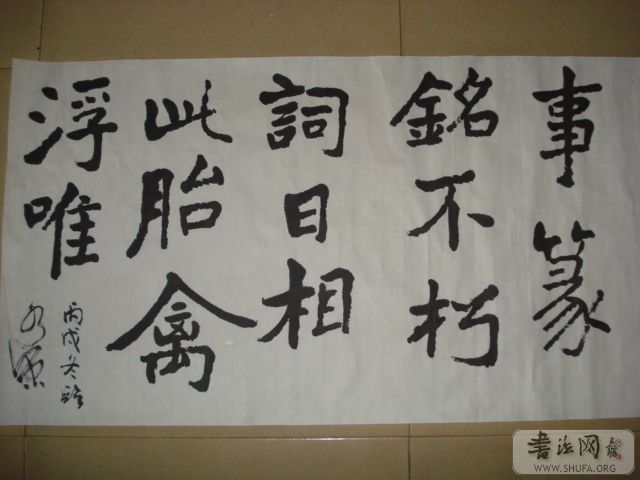 事篆
銘不朽
詞曰相
此胎禽
浮唯
丙戌冬臨
書法网
WWW.SHUFA.ORG